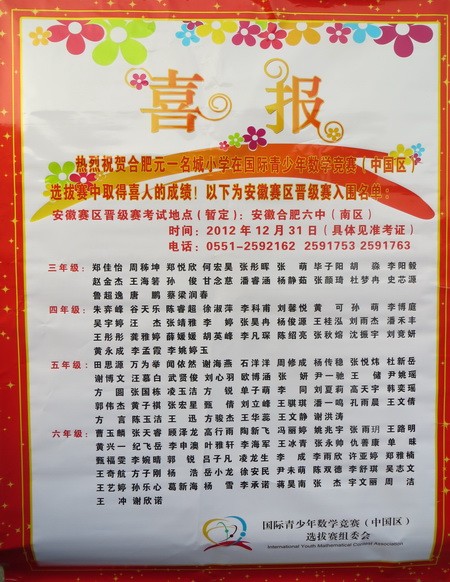 喜报
热烈祝贺合肥元一名城小学在国际青少年数学竞赛（中国区）
选拔赛中取得喜人的成绩！以下为安徽赛区晋级赛入围名单：
安徽赛区晋级赛考试地点（暂定）：安徽合肥六中（南区）
时间：2012年12月31日（具体见准考证）
电话：0551-2592162 2591753 2591763
三年级：郑佳怡 周秭坤 郑悦欣 何宏昊 张彤晖 张萌 毕子阳 胡淼 李阳毅
赵金杰 王海箬 孙俊 甘念慈 潘睿涵 杨静茹 张颜琦 杜梦冉 史芯源
鲁超逸 唐鹏 蔡梁润春
四年级：朱弈峰 谷天乐 陈睿超 徐淑萍 李科甫 刘馨悦 黄可 孙萌 李博庭
吴宇婷 汪杰 张靖雅 李婷 张昊冉 杨俊源 王桂泓 刘雨杰 潘禾丰
王彤彤 龚雅婷 薛媛媛 胡英峰 李凡琛 陈绍亮 张秋熔 沈振宇 刘竟妍
黄永成 李孟霞 李婉婷玉
五年级：田思源 万为举 闻依然 谢海燕 石洋洋 周修成 杨传稳 张悦炜 杜新岳
谢博文 汪慕白 武贤俊 刘心羽 欧博涵 张妍 尹一驰 王健 尹姚瑶
方圆 张国栋 凌玉洁 方锐 单子萌 李同 刘夏莉 高天宇 韩奕瑶
郭伟杰 黄子祺 张宏星 甄倩 刘立峰 王骐琪 潘一鸣 孔雨晨 王文倩
方言 陈玉洁 王迅 方骏杰 王华蕊 王文静 谢洪涛
六年级：曹玉麟 张天睿 顾泽龙 高行雨 陶新飞 冯丽婷 姚兆宇 张雨玥 王路明
黄兴一 纪飞岳 李申澳 叶雅轩 李海军 王冰青 张永帅 仇善康 单昧
甄福雯 李婉晴 郭锐 吕子凡 凌龙生 李成 李雨欣 许亚婷 郑雅楠
王奇航 方子刚 杨浩 岳小龙 徐安民 尹未萌 陈双德 李舒琪 吴志文
王艺婷 孙乐心 葛新海 杨雪 李承诺 蒋昊南 张杰 宇文丽 周洁
王冲 谢欣诺
国际青少年数学竞赛（中国区）
选拔赛组委会
International Youth Mathematical Contest Association